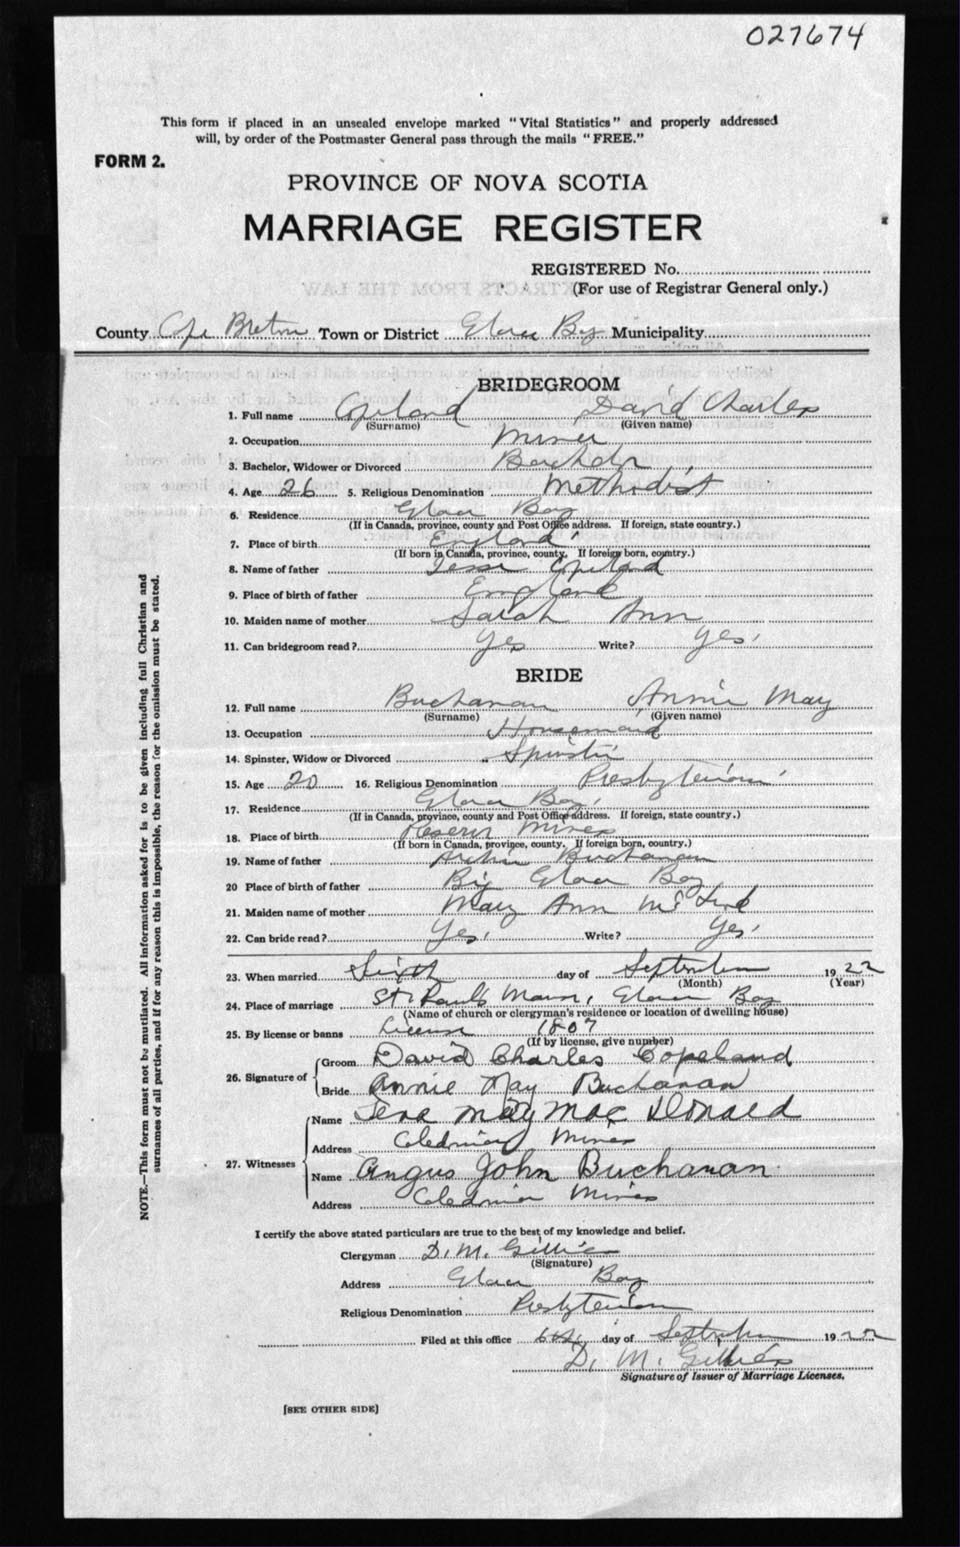 027674
This form if placed in an unsealed envelope marked "Vital Statistics" and properly addressed
will, by order of the Postmaster General pass through the mails "FREE."
FORM 2.
PROVINCE OF NOVA SCOTIA
MARRIAGE REGISTER
REGISTERED No.
(For use of Registrar General only.)
County Cape Breton Town or District Glace Bay Municipality
BRIDEGROOM
1. Full name Copeland David Charles
(Surname) (Given name)
2. Occupation Miner
3. Bachelor, Widower or Divorced Bachelor
4. Age 26 5. Religious Denomination Methodist
6. Residence Glace Bay
(If in Canada, province, county and Post Office address. If foreign, state country.)
7. Place of birth England
(If born in Canada, province, county. If foreign born, country.)
8. Name of father Jesse Copeland
9. Place of birth of father England
10. Maiden name of mother Sarah Ann
11. Can bridegroom read? Yes Write? Yes.
BRIDE
12. Full name Buchanan Annie May
(Surname) (Given name)
13. Occupation Housemaid
14. Spinster, Widow or Divorced Spinster
15. Age 20 16. Religious Denomination Presbyterian
17. Residence Glace Bay.
(If in Canada, province, county and Post Office address. If foreign, state country.)
18. Place of birth Reserve Mines
(If born in Canada, province, county. If foreign born, country.)
19. Name of father Archie Buchanan
20 Place of birth of father Big Glace Bay
21. Maiden name of mother Mary Ann
22. Can bride read? Yes. Write? Yes.
23. When married Sixth day of September 1922
(Month) (Year)
24. Place of marriage St. Paul's Manse, Glace Bay
(Name of church or clergyman's residence or location of dwelling house)
25. By license or banns License 1807
(If by license, give number)
26. Signature of Groom David Charles Copeland
Bride Annie May Buchanan
27. Witnesses Name Tena May MacDonald
Address Caledonia Mines
Name Angus John Buchanan
Address Caledonia Mines
I certify the above stated particulars are true to the best of my knowledge and belief.
Clergyman D. M. Gillies
(Signature)
Address Glace Bay
Religious Denomination Presbyterian
Filed at this office 6th day of September 1922
D. M. Gillies
Signature of Issuer of Marriage Licenses.
[SEE OTHER SIDE]
NOTE.—This form must not be mutilated. All information asked for is to be given including full Christian and
surnames of all parties, and if for any reason this is impossible, the reason for the omission must be stated.